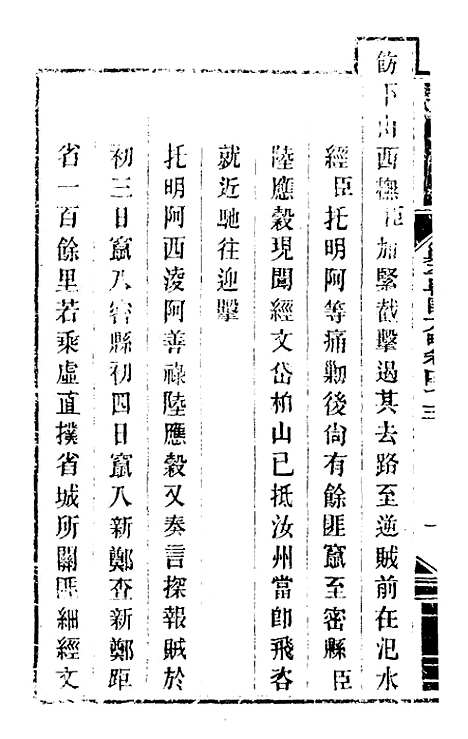 飭下山西撫臣加緊截擊遏其去路至逆賊前在汜水
經臣托明阿等痛勦後尙有餘匪竄至密縣臣
陸應穀現聞經文岱柏山已抵汝州當卽飛咨
就近馳往迎擊
托明阿西淩阿善祿陸應穀又奏言探報賊於
初三日竄入密縣初四日竄入新鄭查新鄭距
省一百餘里若乘虛直撲省城所關匪細經文